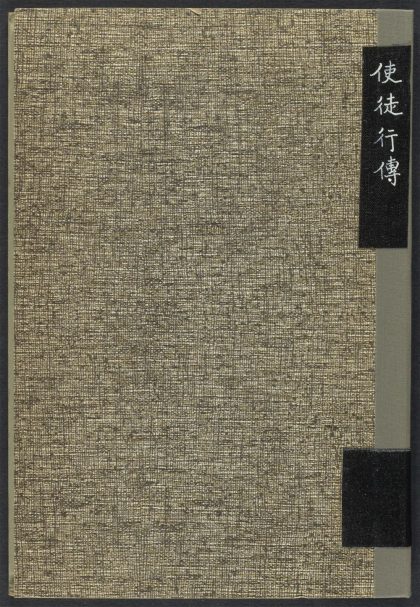 使徒行傳